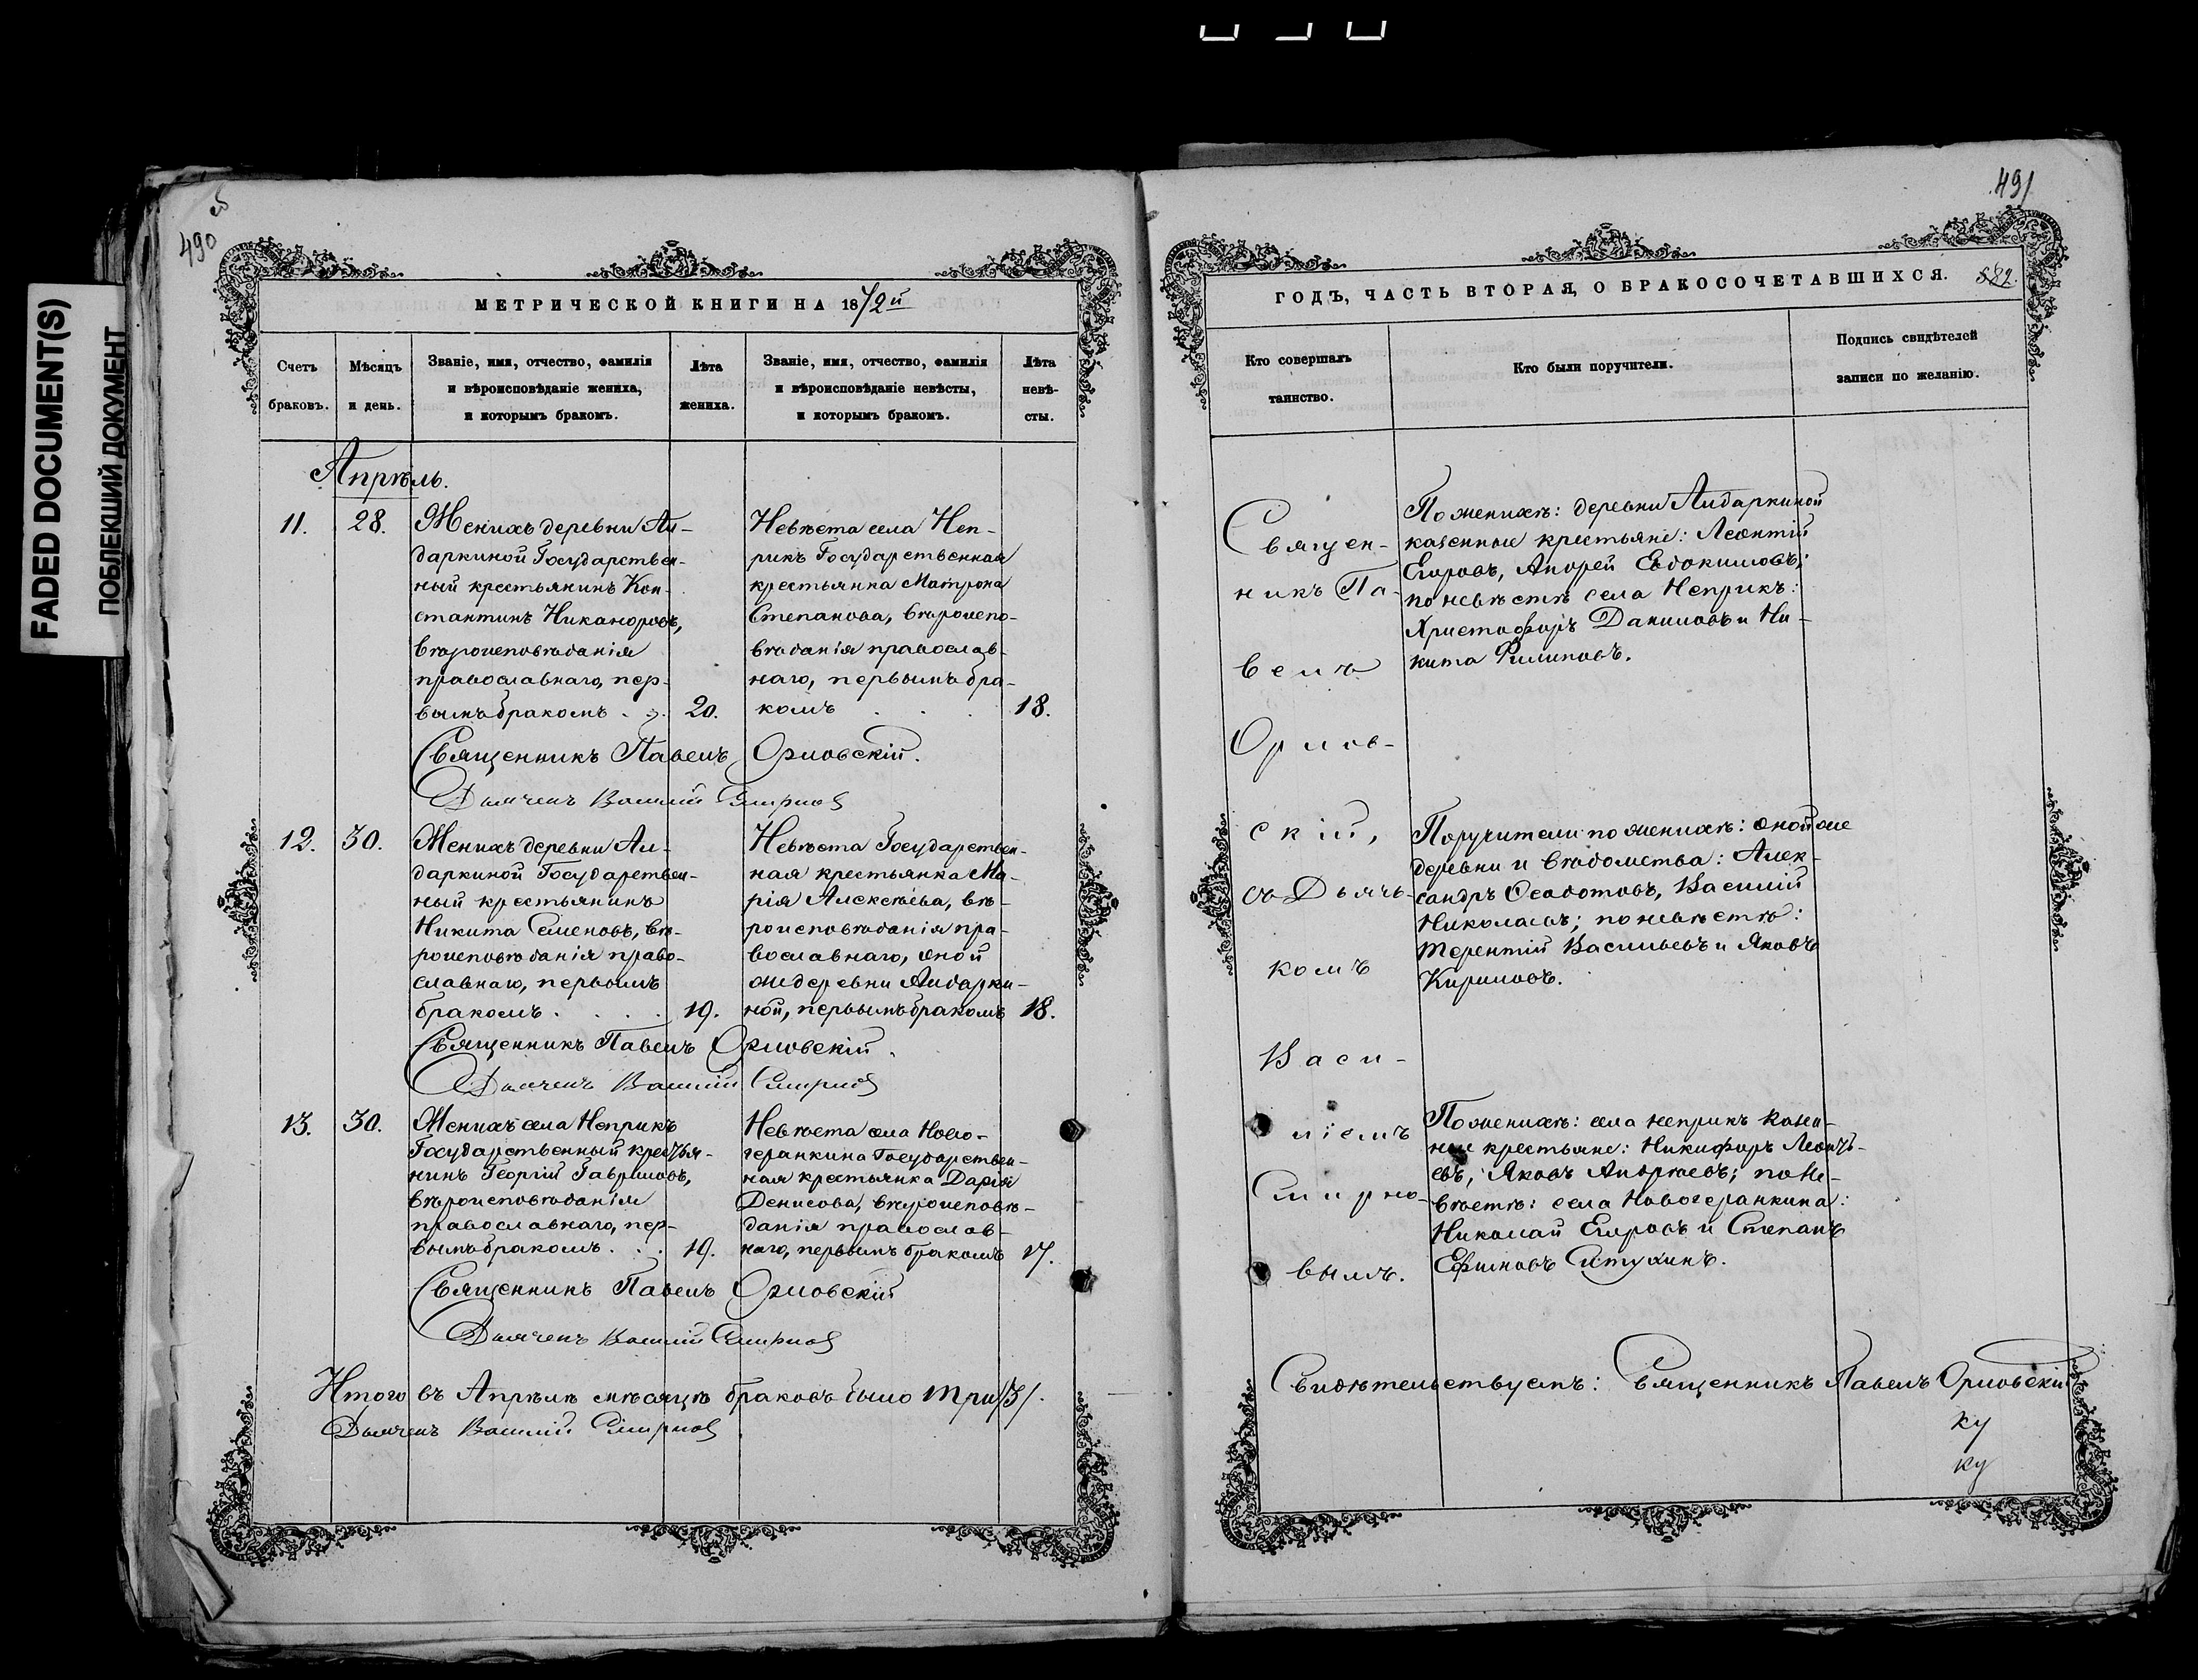 FADED DOCUMENT(S)
ПОБЛЕКШИЙ ДОКУМЕНТ
490
МЕТРИЧЕСКОЙ КНИГИ НА 1872й
Счетъ
браковъ.
Мѣсяцъ
и день.
Званіе, имя, отчество, фамилія
и вѣроисповѣданіе жениха,
и которымъ бракомъ.
Лѣта
жениха.
Званіе, имя, отчество, фамилія
и вѣроисповѣданіе невѣсты,
и которымъ бракомъ.
Лѣта
невѣ-
сты.
Апрѣль.
11.
28.
Женихъ деревни Аи-
даркиной Государствен-
ный крестьянинъ Кон-
стантинъ Никаноровъ,
вѣроисповѣданія
православнаго, пер-
вымъ бракомъ
20.
Невѣста села Неп-
рикъ Государственная
крестьянка Матрона
Степанова, вѣроиспо-
вѣданія православ-
наго, первымъ бра-
комъ
18.
Священникъ Павелъ Орловскій.
Дьячекъ Василій Смирнов
12.
30.
Женихъ деревни Аи-
даркиной Государствен-
ный крестьянинъ
Никита Семеновъ, вѣ-
роисповѣданія право-
славнаго, первымъ
бракомъ
19.
Невѣста Государствен-
ная крестьянка Ма-
рія Алексѣева, вѣ-
роисповѣданія пра-
вославнаго, оной
же деревни Аидарки-
ной, первымъ бракомъ
18.
Священникъ Павелъ Орловскій.
Дьячекъ Василій Смирнов
13.
30.
Женихъ села Неприкъ
Государственный крестья-
нинъ Георгій Гавриловъ,
вѣроисповѣданія
православнаго, пер-
вымъ бракомъ
19.
Невѣста села Ново-
геранкина Государствен-
ная крестьянка Дарія
Денисова, вѣроисповѣ-
данія православ-
наго, первымъ бракомъ
17.
Священникъ Павелъ Орловскій
Дьячекъ Василій Смирнов
Итого въ Апрѣлѣ мѣсяцѣ браковъ было три /3/.
Дьячекъ Василій Смирнов
491
ГОДЪ, ЧАСТЬ ВТОРАЯ, О БРАКОСОЧЕТАВШИХСЯ.
Кто совершалъ
таинство.
Кто были поручители.
Подпись свидѣтелей
записи по желанію.
Священ-
никъ Па-
велъ
Орлов-
скій,
съ Дьяч-
комъ
Васи-
ліемъ
Смирно-
вымъ.
По женихѣ: деревни Аидаркиной
казенные крестьяне: Леонтій
Егоровъ, Андрей Евдокимовъ;
по невѣстѣ села Неприкъ:
Христофоръ Даниловъ и Ни-
кита Филиповъ.
Поручители по женихѣ: оной же
деревни и вѣдомства: Алек-
сандръ Ѳедотовъ, Василій
Николаевъ; по невѣстѣ:
Терентій Васильевъ и Яковъ
Кириловъ.
По женихѣ: села Неприкъ казен-
ные крестьяне: Никифоръ Леонть-
евъ, Яковъ Андреевъ; по не-
вѣстѣ: села Новогеранкина:
Николай Егоровъ и Степанъ
Ефимовъ
Свидѣтельствуетъ: Священникъ Павелъ Орловскій